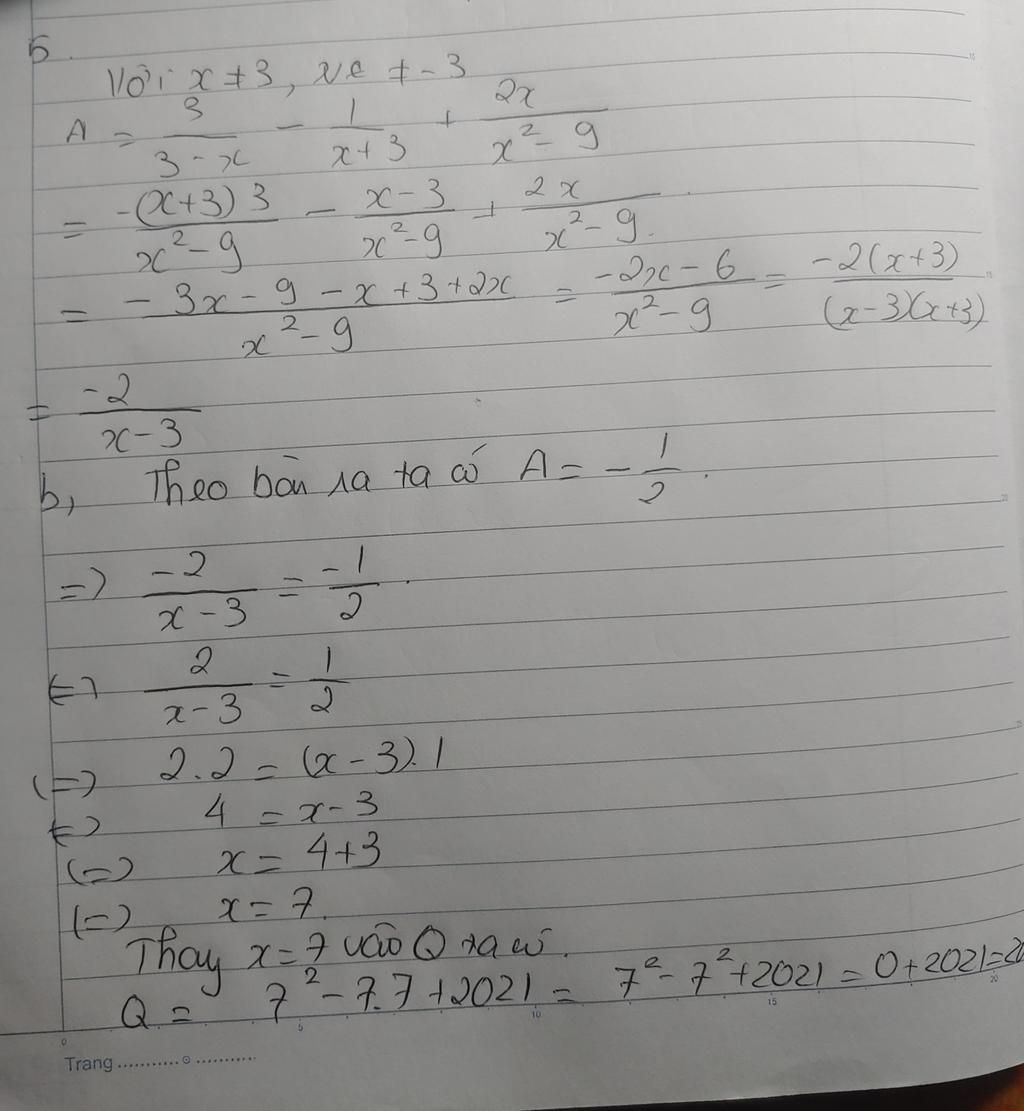 5.
Với x ≠ 3, x ≠ -3
A = 3/(3 - x) - 1/(x + 3) + 2x/(x² - 9)
= -(x+3)3/(x² - 9) - (x - 3)/(x² - 9) + 2x/(x² - 9).
= (-3x - 9 - x + 3 + 2x)/(x² - 9) = (-2x - 6)/(x² - 9) = -2(x+3)/((x-3)(x+3))
= -2/(x - 3)
b, Theo bài ra ta có A = - 1/2.
=> -2/(x - 3) = -1/2.
<=> 2/(x - 3) = 1/2
<=> 2.2 = (x - 3).1
<=> 4 = x - 3
<=> x = 4+3
<=> x = 7.
Thay x = 7 vào Q ta có.
Q = 7² - 7.7 + 2021 = 7² - 7² + 2021 = 0 + 2021 = 20
0 5 10 15 20
Trang